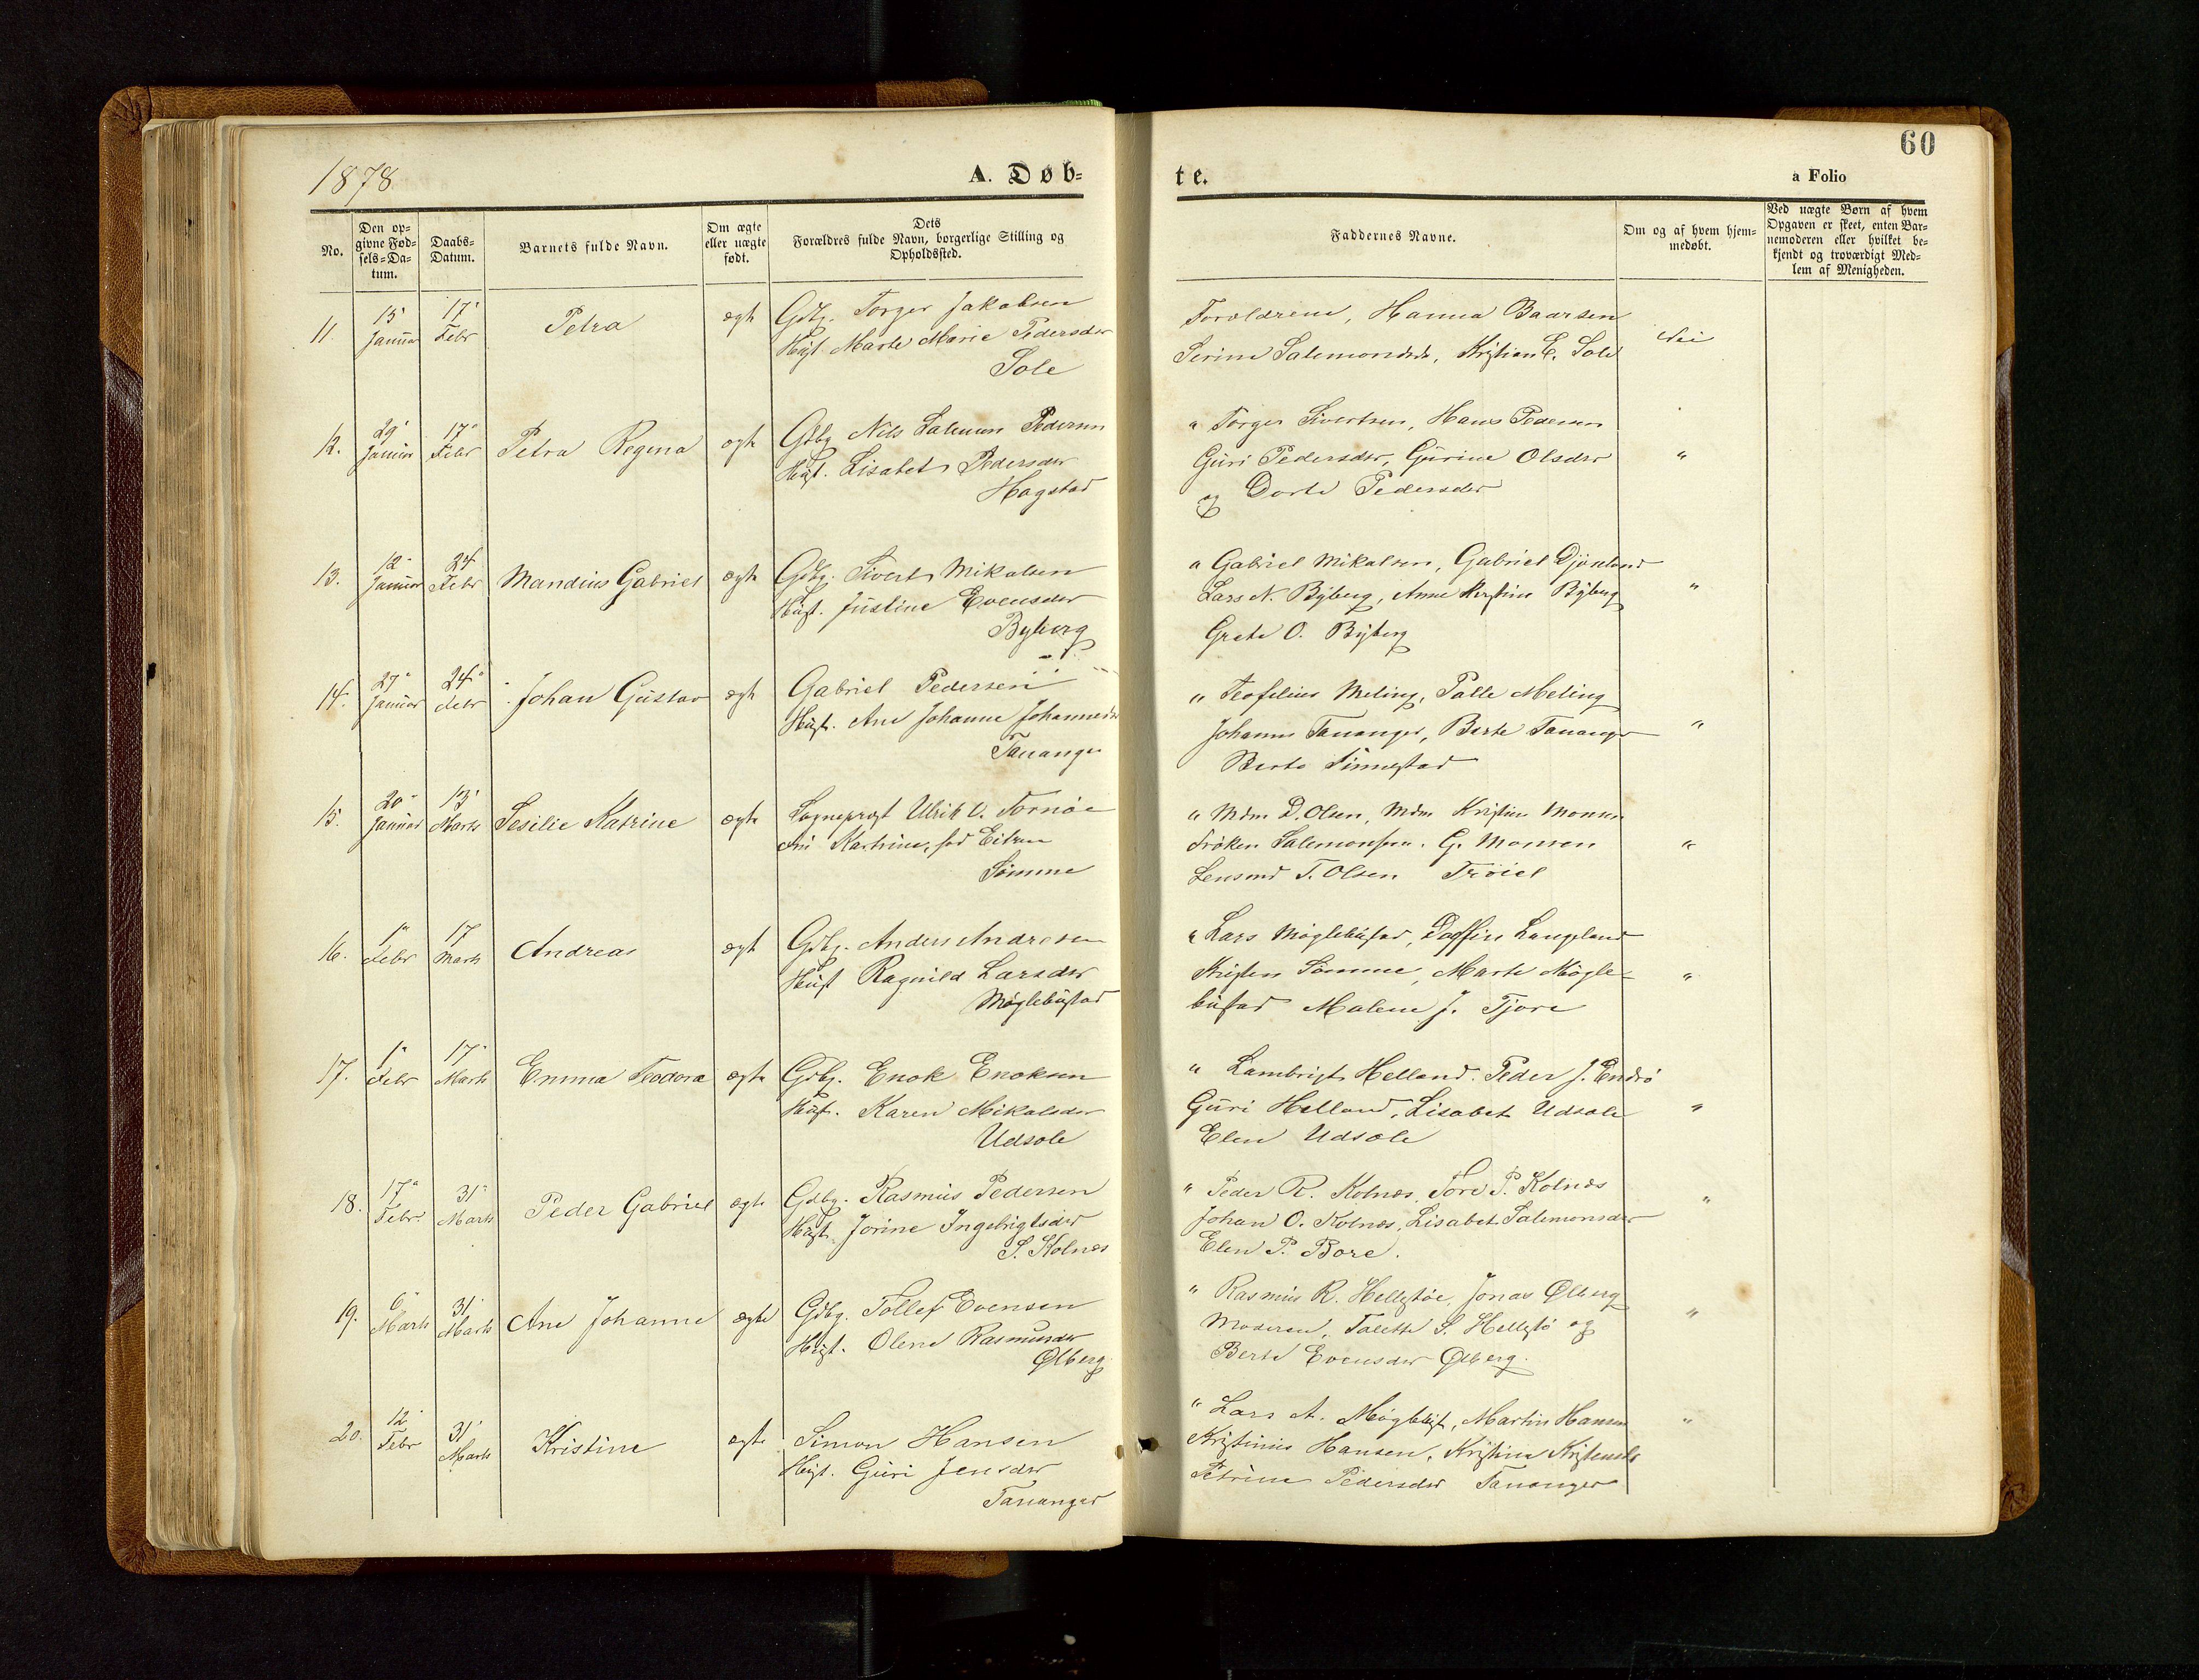 1878
A. Døb=
te.
a Folio
60
No.
Den op=
givne Fød=
sels=Da=
tum.
Daabs=
Datum.
Barnets fulde Navn.
Om ægte
eller uægte
født.
Dets
Forældres fulde Navn, borgerlige Stilling og
Opholdssted.
Faddernes Navne.
Om og af hvem hjem=
medøbt.
Ved uægte Børn af hvem
Opgaven er skeet, enten Bar=
nemoderen eller hvilket be=
kjendt og troværdigt Med=
lem af Menigheden.
11. 15 Januar 17 Febr Petra ægte Gdbg. Torger Jakobsen
Hust. Marte Marie Pedersdr
Sole
Forældrene, Hanna Baarsen
Serine Salemonsdr, Kristian E. Sole
Nei
12. 29 Januar 17 Febr Petra Regina ægte Gdbg Nils Salemon Pedersen
Hust. Lisabet Pedersdr
Hagstad
" Torger Sivertsen, Hans Pedersen
Guri Pedersdr, Gurine Olsdr "
og Dorte Pedersdr
13. 12 Januar 24 Febr Mandius Gabriel ægte Gdbg. Sivert Mikalsen
Hust. Justine Evensdr
Byberg
" Gabriel Mikalsen, Gabriel Djøseland
Lars N. Byberg, Anne Kerstine Byberg "
Grete O. Byberg
14. 27 Januar 24 Febr Johan Gustav ægte Gabriel Pedersen
Hust. Ane Johanne Johannesdr
Tananger
" Teofilius Meling, Palle Meling
Johannes Tananger, Berte Tananger "
Berte Sunnestad
15. 20 Januar 13 Marts Sesilie Katrine ægte Sogneprest Ulrik V. Tornøe
Fru Kathrine, fød Eitzen
Sømme
" Mdm D. Olsen, Mdm Kristine Monsen
Frøken Salemonsen. G. Monsen "
Lensmd T. Olsen Trøiel
16. 1 Febr 17 Marts Andreas ægte Gdbg. Anders Andresen
Hust Ragnild Larsdr
Møglebustad
" Lars Møglebustad, Daffin Langeland
Kristen Sømme, Marte Møgle= "
bustad Malene J. Tjore
17. 1 Febr 17 Marts Emma Teodora ægte Gdbg. Enok Enoksen
Hust. Karen Mikalsdr
Udsole
" Lambrigt Helland. Peder J. Endrø
Guri Helland, Lisabet Udsole "
Elen Udsole
18. 17 Febr. 31 Marts Peder Gabriel ægte Gdbg. Rasmus Pedersen
Hust. Jorine Ingebrigtsdr
S. Kolnes
" Peder R. Kolnes, Tore P. Kolnes "
Johan O. Kolnes, Lisabet Salemonsdr
Elen P. Bore.
19. 6 Marts 31 Marts Ane Johanne ægte Gdbg. Tollef Evensen
Hust. Olene Rasmusdr
Ølberg
" Rasmus R. Hellestøe, Jonas Ølberg
Moderen, Talette S. Hellestø og "
Berte Evensdr Ølberg.
20. 12 Febr 31 Marts Kristine ægte Simon Hansen
Hust. Guri Jensdr
Tananger
" Lars A. Møglebust, Martin Hansen "
Kristinius Hansen, Kristine Kristensdr
Petrine Pedersdr Tananger